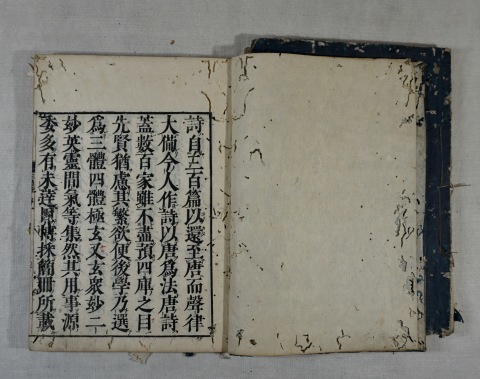 詩自三百篇以還至唐而聲律
大備今人作詩以唐爲法唐詩
蓋數百家雖不盡預四庫之目
先賢猶慮其繁欲便後學乃選
爲三體四體極玄又玄衆妙二
妙英靈間氣等集然其用事源
委多有未達採簡冊所載